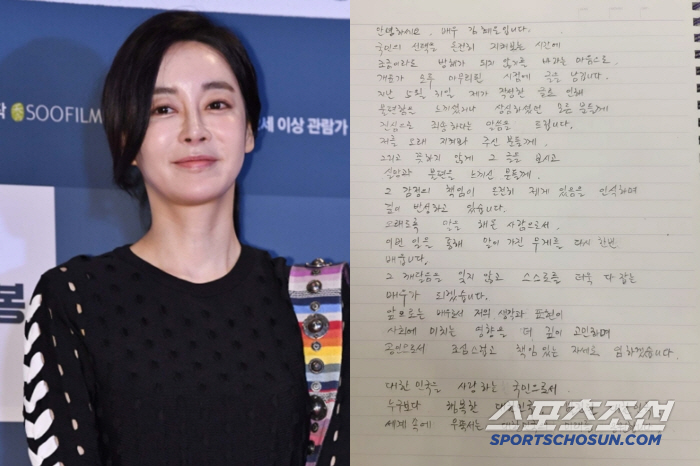 SOOFILM
세 이상 관람가
봉
안녕하세요, 배우 김혜은입니다.
국민의 선택을 온전히 지켜보는 시간에
조금이라도 방해가 되지 않기를 바라는 마음으로
개표가 모두 마무리된 시점에 글을 남깁니다.
지난 5월 31일 제가 작성한 글로 인해
불편함을 느끼셨거나 상심하셨던 모든 분들께
진심으로 죄송하다는 말씀을 드립니다.
저를 오래 지켜봐 주신 분들께.
그리고 뜻하지 않게 그 글을 보시고
실망과 불편을 느끼신 분들께.
그 감정의 책임이 온전히 제게 있음을 인식하며
깊이 반성하고 있습니다.
오래도록 말을 해온 사람으로서.
이번 일을 통해 말이 가진 무게를 다시 한번
배웁니다.
그 깨달음을 잊지 않고 스스로를 더욱 다잡는
배우가 되겠습니다.
앞으로는 배우로서 저의 생각과 표현이
사회에 미치는 영향을 더 깊이 고민하며
공인으로서 조심스럽고 책임 있는 자세로 임하겠습니다.
대한민국을 사랑하는 국민으로서.
누구보다 행복한
세계 속에 우뚝서는
스포츠조선
SPORTSCHOSUN.COM